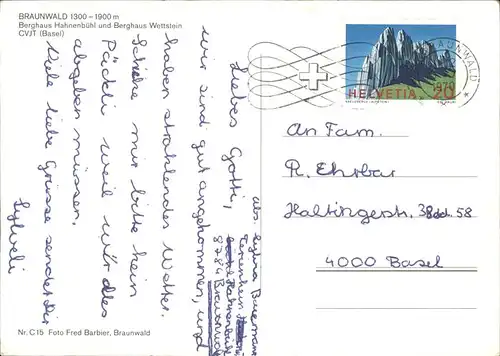 BRAUNWALD 1300 – 1900 m
Berghaus Hahnenbühl und Berghaus Wettstein
CVJT (Basel)
Liebes Gotti,
wir sind gut angekommen, und
haben strahlendes Wetter.
Schicke mir bitte kein
Päckli weil wir alles
abgeben müssen.
Viele liebe Grüsse sendet Dir
Sylveli
Abs. Sylvia
Ferienheim
8784 Braunwald
BRAUNWALD
HELVETIA 20
An Fam.
R. Ehrbar
Haltingerstr. 58
4000 Basel
Nr. C15 Foto Fred Barbier, Braunwald